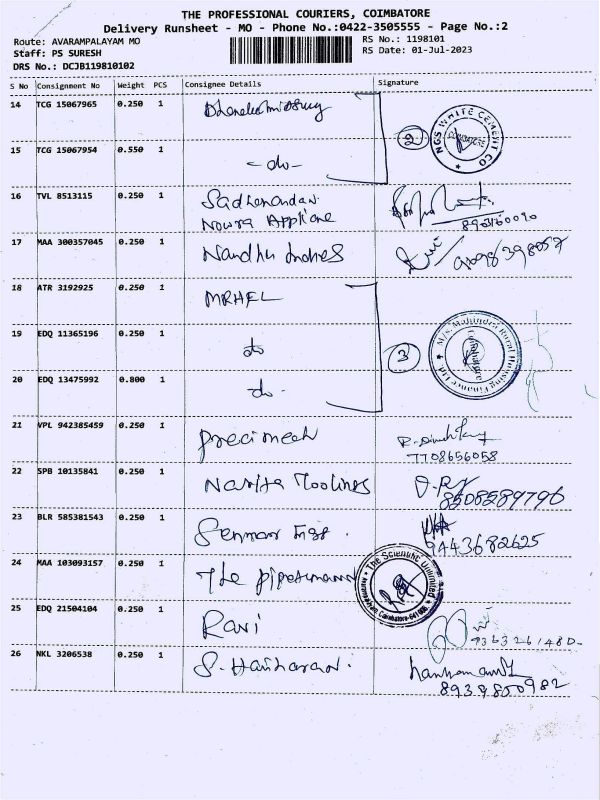 THE PROFESSIONAL COURIERS, COIMBATORE
Delivery Runsheet - MO - Phone No.:0422-3505555 - Page No.:2
Route: AVARAMPALAYAM MO
RS No.: 1198101
Staff: PS SURESH
RS Date: 01-Jul-2023
DRS No.: DCJB119810102
S No Consignment No Weight PCS Consignee Details Signature
14 TCG 15067965 0.250 1
2 NGS WHITE CEMENT CO COIMBATORE
15 TCG 15067954 0.550 1 - do -
16 TVL 8513115 0.250 1
17 MAA 300357045 0.250 1 Nandhu Indres
18 ATR 3192925 0.250 1 MRHFL
19 EDQ 11365196 0.250 1 do
3 M/s. Mahindra Rural Housing Finance Ltd. Coimbatore
20 EDQ 13475992 0.800 1 do -
21 VPL 942385459 0.250 1 precimech
7708656058
22 SPB 10135841 0.250 1 Narita Toolings
8508589796
23 BLR 585381543 0.250 1
9443682625
24 MAA 103093157 0.250 1 The
The Scientific Unlimited
Coimbatore-641 006
25 EDQ 21504104 0.250 1 Ravi
26 NKL 3206538 0.250 1 S. Hariharan.
8939800982